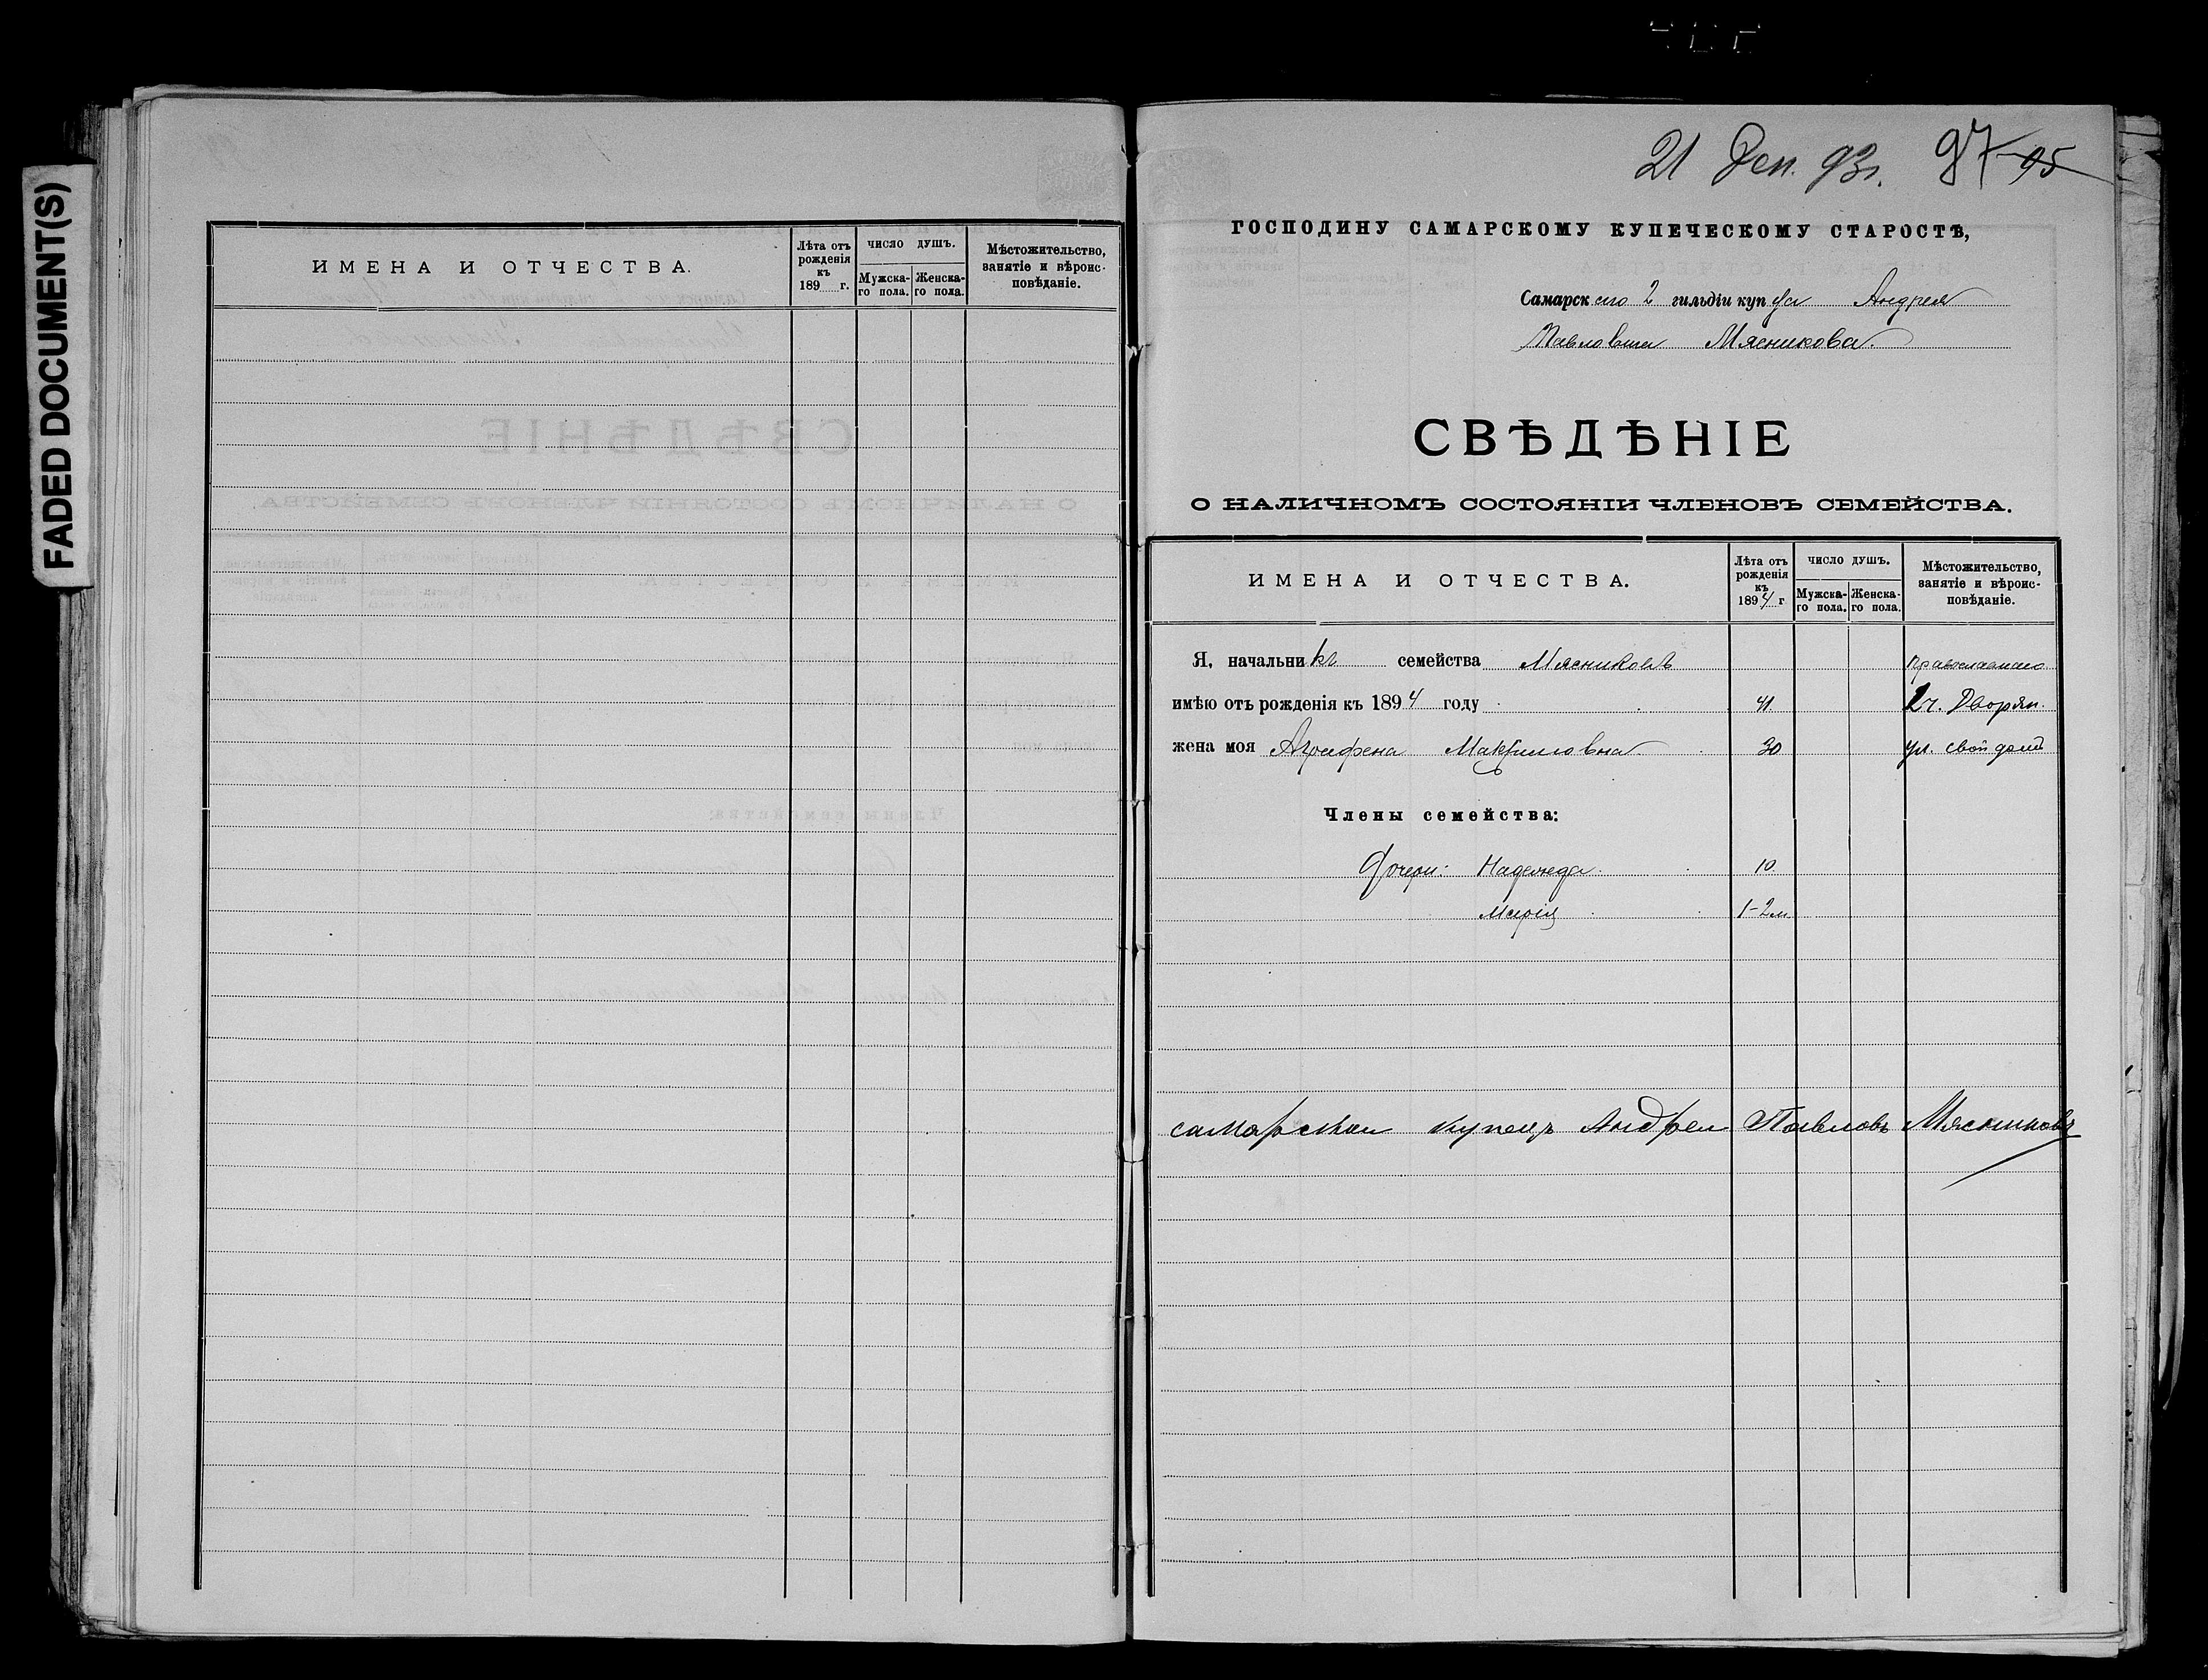 FADED DOCUMENT(S)
ИМЕНА И ОТЧЕСТВА.
Лѣта отъ рожденія къ 189 г.
ЧИСЛО ДУШЪ.
Мужска-
го пола.
Женска-
го пола.
Мѣстожительство,
занятіе и вѣроис-
повѣданіе.
21 Дек. 93г. 97 95
ГОСПОДИНУ САМАРСКОМУ КУПЕЧЕСКОМУ СТАРОСТѢ,
Самарскаго 2 гильдіи купца Андрея
Павловича Мясникова
СВѢДѢНІЕ
О НАЛИЧНОМЪ СОСТОЯНІИ ЧЛЕНОВЪ СЕМЕЙСТВА.
ИМЕНА И ОТЧЕСТВА.
Лѣта отъ
рожденія
къ
1894 г
ЧИСЛО ДУШЪ.
Мужска-
го пола.
Женска-
го пола.
Мѣстожительство,
занятіе и вѣроис-
повѣданіе.
Я, начальникъ семейства Мясниковъ Православнаго
имѣю отъ рожденія къ 1894 году 41 2ч. Дворян.
жена моя Агрифена Максимовна 30 ул. свой домъ
Члены семейства:
Дочери: Надежда 10
Марія 1-2м.
самарскаи купецъ Андреи Павловъ Мясниковъ